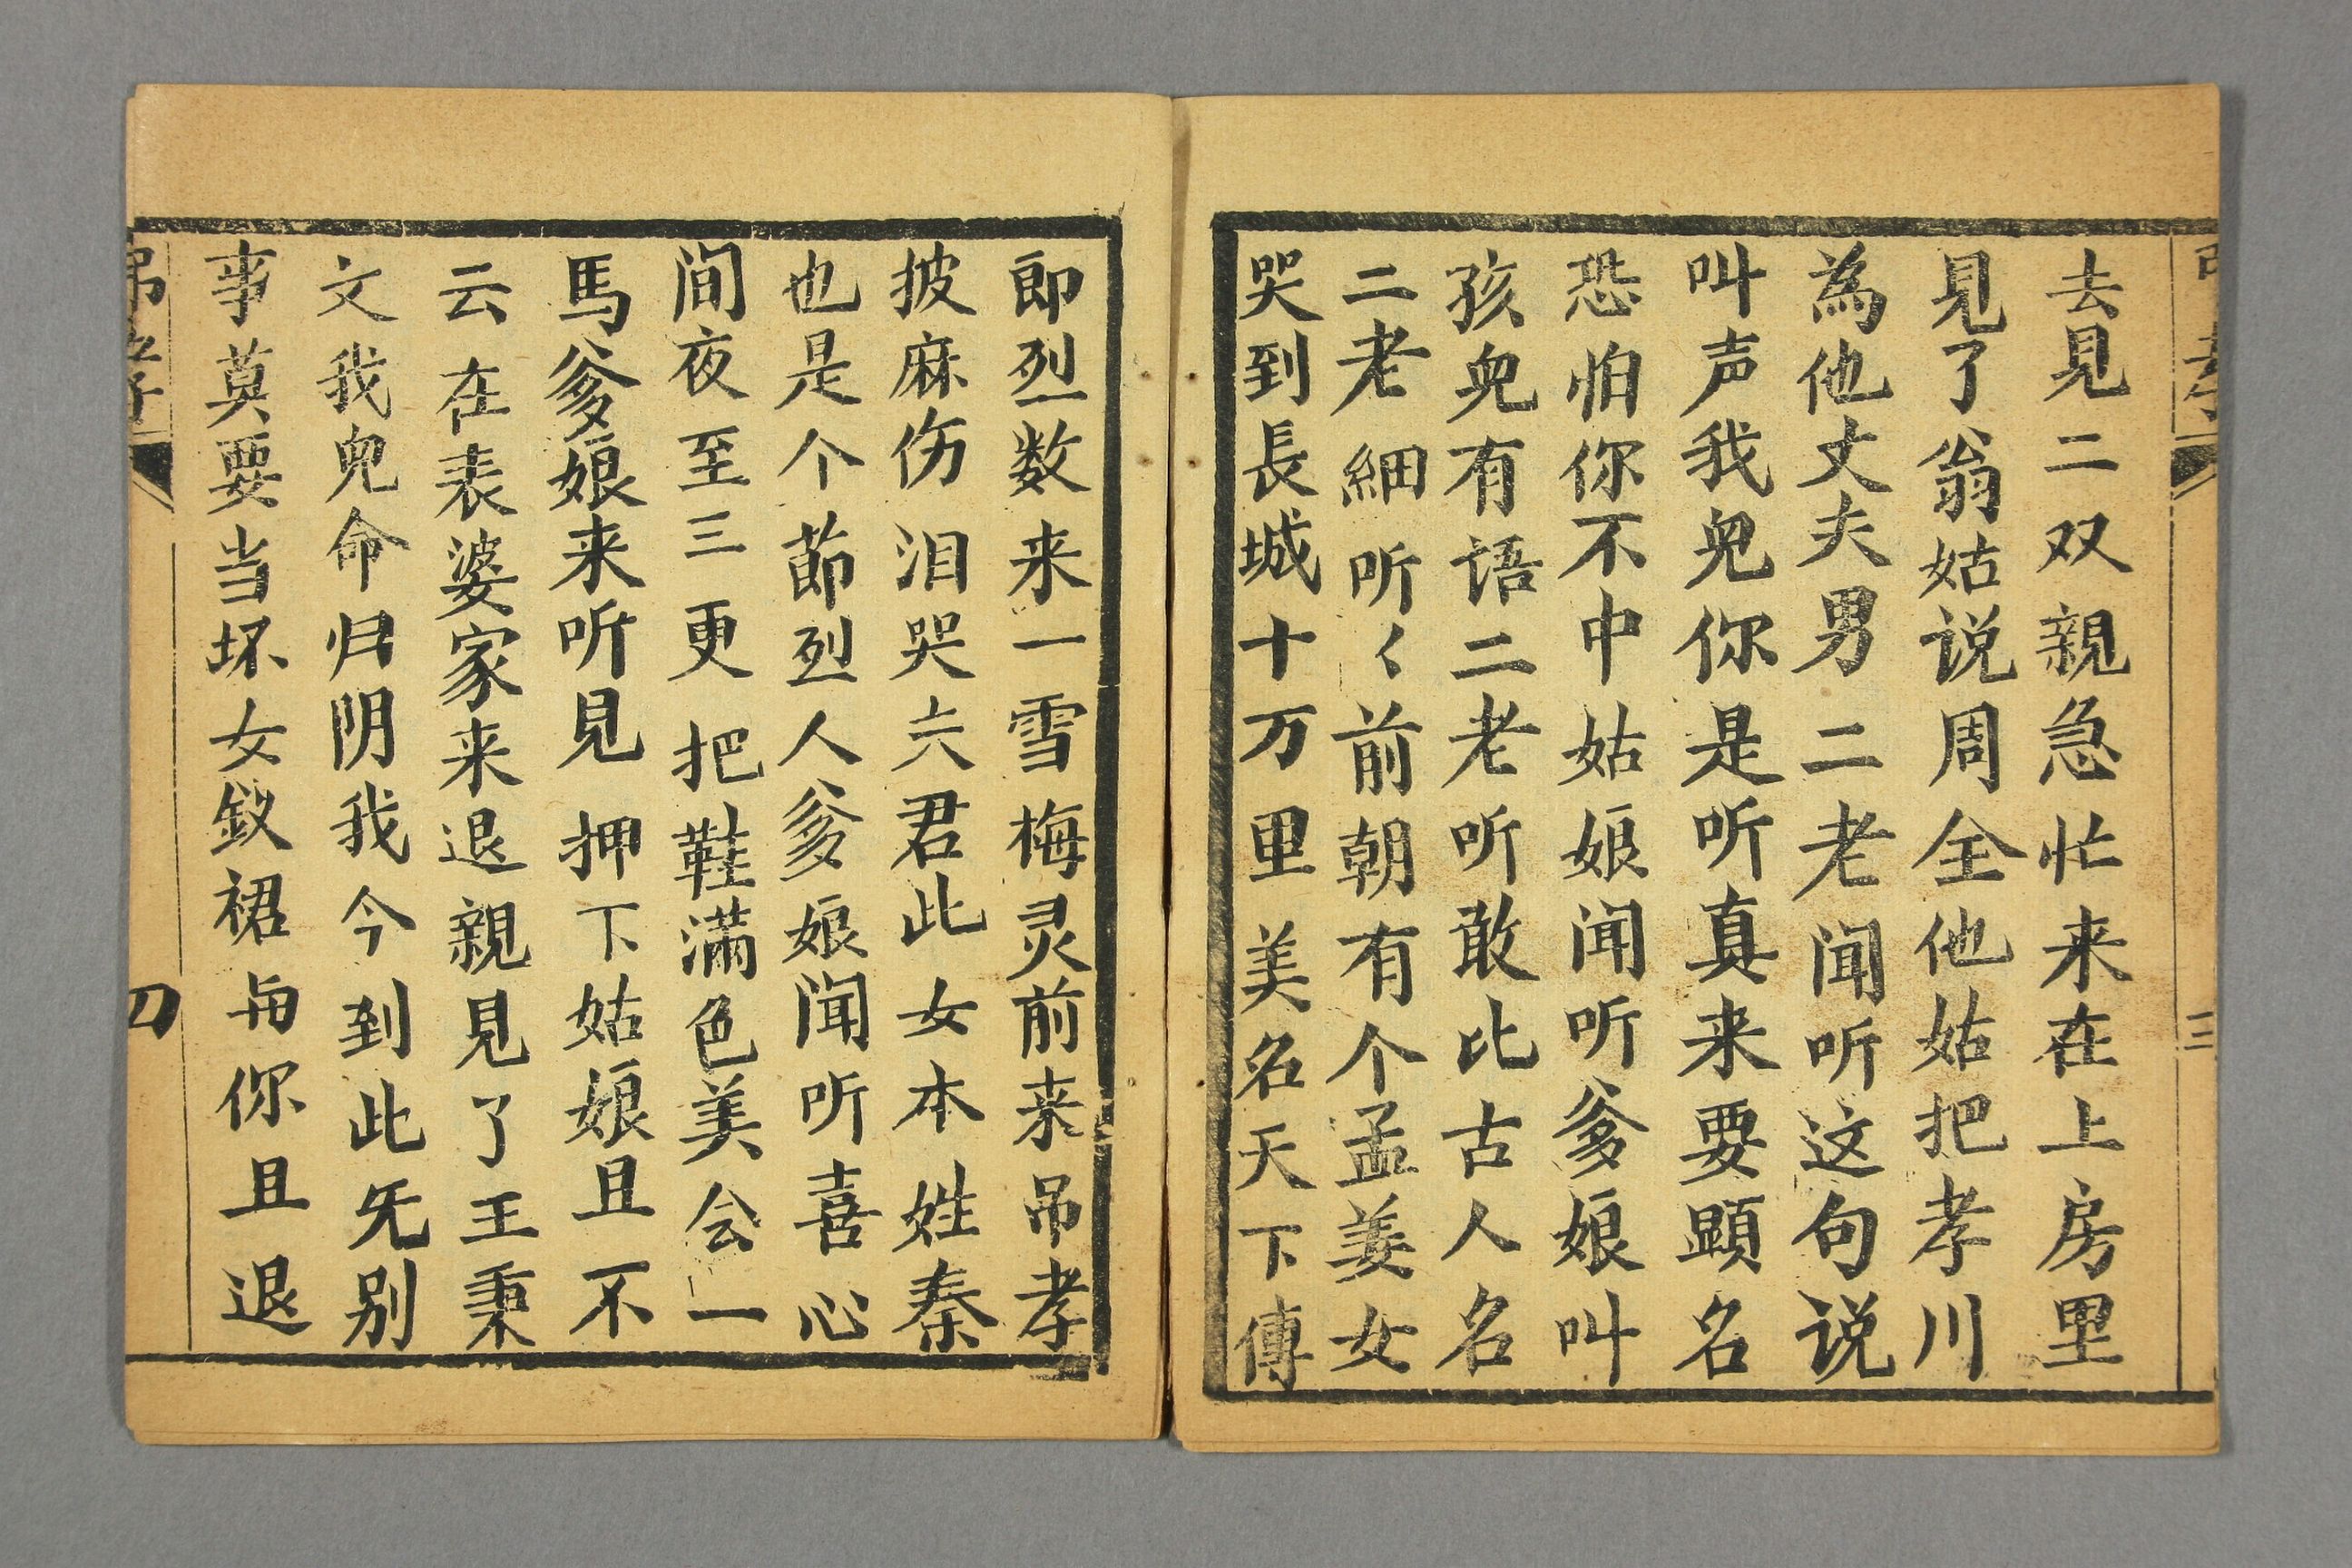 吊孝
三
去見二双親急忙来在上房里
見了翁姑说周全他姑把孝川
為他丈夫男二老闻听这句说
叫声我児你是听真来要顕名
恐怕你不中姑娘闻听爹娘叫
孩児有语二老听敢比古人名
二老細听〱前朝有个孟姜女
哭到長城十万里美名天下傳
節烈数来一雪梅灵前来吊孝
披麻伤泪哭六君此女本姓秦
也是个節烈人爹娘闻听喜心
间夜至三更把鞋满色美会一
馬爹娘来听見押下姑娘且不
云在表婆家来退親見了王秉
文我児命归阴我今到此旡别
事莫要当坏女釵裙与你且退
吊孝
四